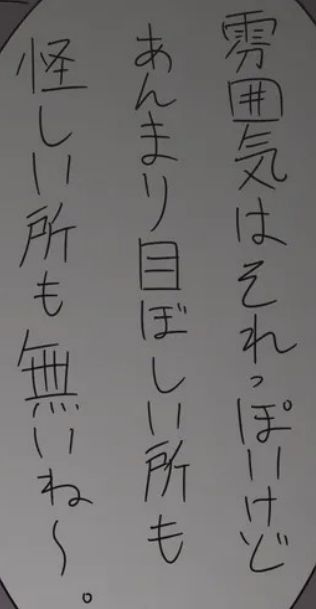 雰囲気はそれっぽいけど
あんまり目ぼしい所も
怪しい所も無いね～。